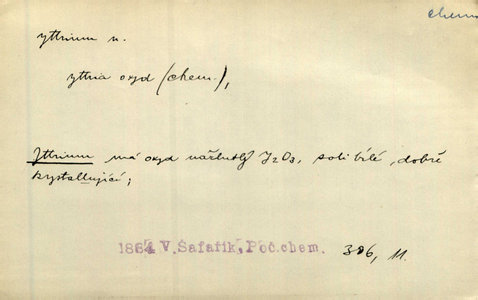 chem
yttrium n.
yttria oxyd (chem.),
Yttrium má oxyd nažlutlý Y2O3, soli bílé, dobře
krystallující;
1864 V. Šafařík, Poč.chem. 306, 11.